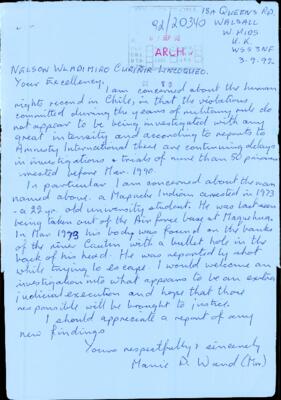 18A QUEENS RD.
WALSALL
W. MIDS
U.K.
WS5 3NF
3-9-92
92/20340
ARCH
NELSON WLADIMIRO CURIÑIR LINCOQUEO.
Your Excellency,
I am concerned about the human
rights record in Chile, in that the violations
committed during the years of military rule do
not appear to be being investigated with any
great intensity and according to reports to
Amnesty International there are continuing delays
in investigations & trials of more than 50 prisoners
arrested before Mar. 1990
In particular I am concerned about the man
named above. a Mapuche Indian arrested in 1973
- a 22 yr. old university student. He was last seen
being taken out of the Air force base at Maquehua.
In Mar 1973 his body was found on the banks
of the river Cautin with a bullet hole in the
back of his head. He was reportedly shot
while trying to escape. I would welcome an
investigation into what appears to be an extra
judicial execution and hope that those
responsible will be brought to justice.
I should appreciate a report of any
new findings
Yours respectfully & sincerely
D. Ward (Mrs)